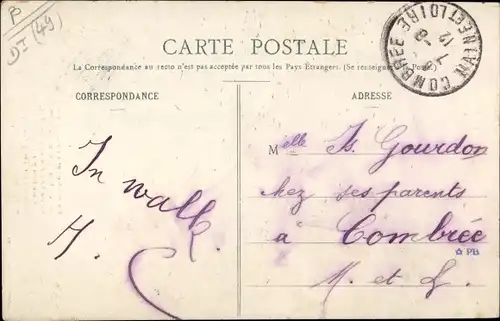 P
DT (49)
CARTE POSTALE
La Correspondance au recto n'est pas acceptée par tous les Pays Étrangers. (Se renseigner à la Poste).
CORRESPONDANCE
ADRESSE
COMBREE MAINE ET LOIRE
12
In walk.
H. C
Melle Is. Gourdon
chez ses parents
à Combrée
PB
M. et L.